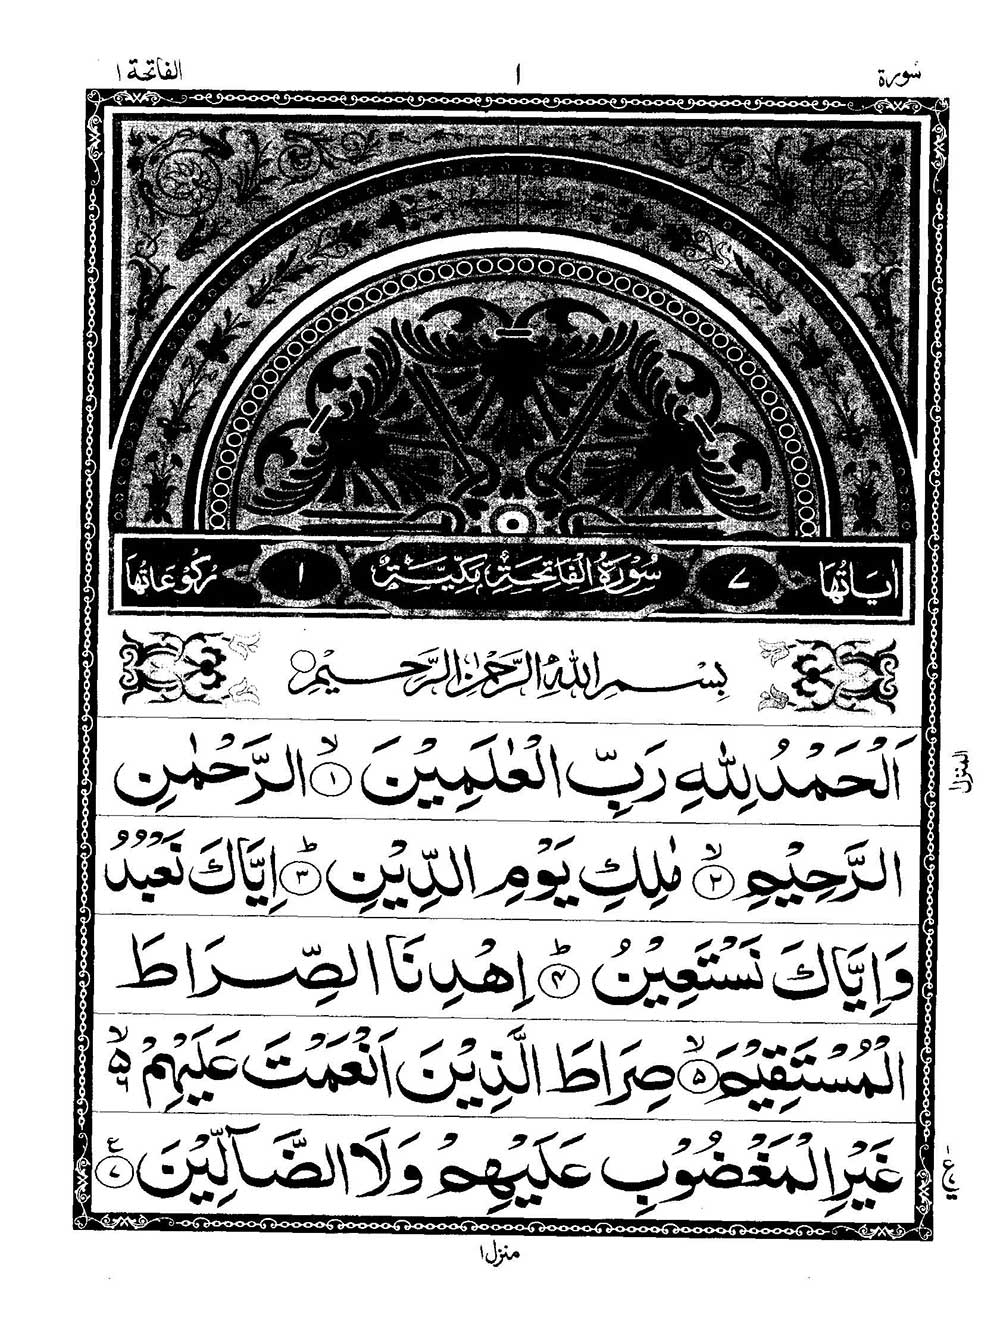 سورة ١ الفاتحة ١
اٰيَاتُهَا ٧ سُوْرَةُ الْفَاتِحَةِ مَكِّيَّةٌ ١ رُكُوْعَاتُهَا
بِسْمِ اللّٰهِ الرَّحْمٰنِ الرَّحِيْمِ ○
اَلْحَمْدُ لِلّٰهِ رَبِّ الْعٰلَمِيْنَ ۙ﴿١﴾ الرَّحْمٰنِ
الرَّحِيْمِ ۙ﴿٢﴾ مٰلِكِ يَوْمِ الدِّيْنِ ؕ﴿٣﴾ اِيَّاكَ نَعْبُدُ
وَاِيَّاكَ نَسْتَعِيْنُ ؕ﴿٤﴾ اِهْدِنَا الصِّرَاطَ
الْمُسْتَقِيْمَ ۙ﴿٥﴾ صِرَاطَ الَّذِيْنَ اَنْعَمْتَ عَلَيْهِمْ ۙ۵ ٦
غَيْرِ الْمَغْضُوْبِ عَلَيْهِمْ وَلَا الضَّآلِّيْنَ ﴿٧﴾ ع
المنزل
منزل ١